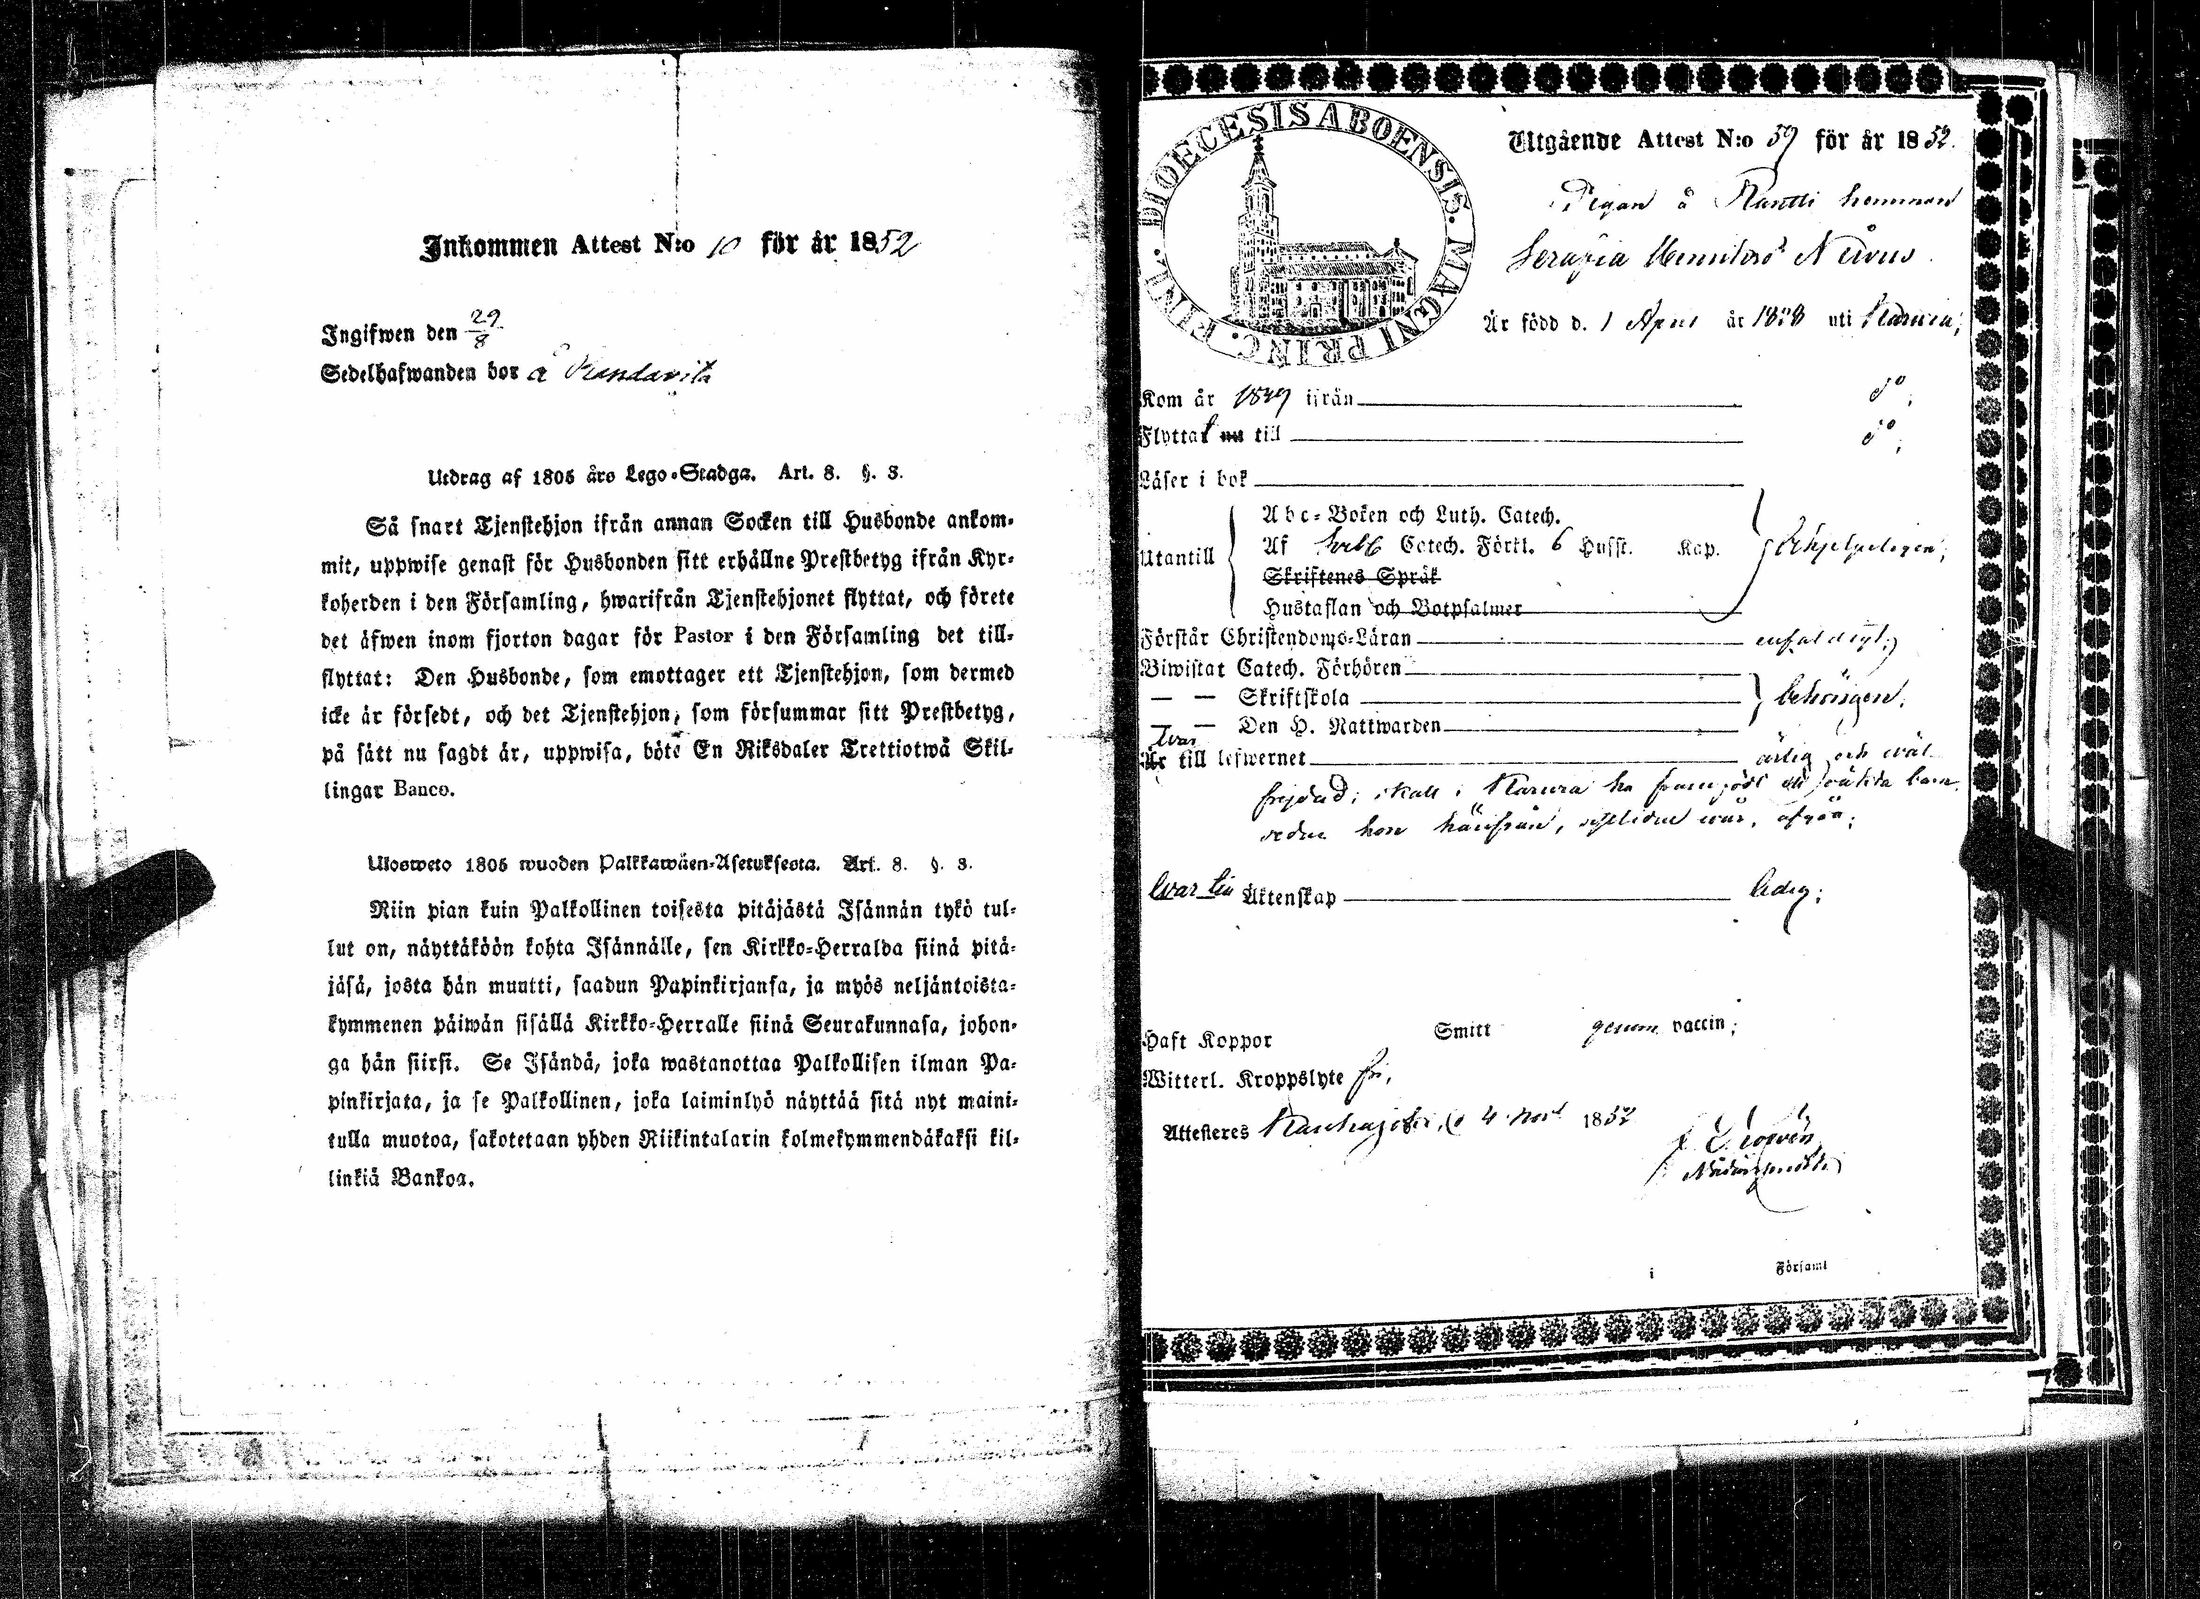 Inkommen Attest N:o 10 för år 1852
Ingifwen den 29/8
Sedelhafwanden bor å
Utdrag af 1805 års Lego-Stadga. Art. 8. §. 3.
Så snart Tjenstehjon ifrån annan Socken till Husbonde ankom-
mit, uppwise genast för Husbonden sitt erhållne Prestbetyg ifrån Kyr-
koherden i den Församling, hwarifrån Tjenstehjonet flyttat, och förete
det äfwen inom fjorton dagar för Pastor i den Församling det till-
flyttat: Den Husbonde, som emottager ett Tjenstehjon, som dermed
icke är försedt, och det Tjenstehjon, som försummar sitt Prestbetyg,
på sätt nu sagdt är, uppwisa, böte En Riksdaler Trettiotwå Skil-
lingar Banco.
Ulosweto 1805 wuoden Palkkawäen-Asetuksesta. Art. 8. §. 3.
Niin pian kuin Palkollinen toisesta pitäjästä Isännän tykö tul-
lut on, näyttäköön kohta Isännälle, sen Kirkko-Herralda siinä pitä-
jäsä, josta hän muutti, saadun Papinkirjansa, ja myös neljäntoista-
kymmenen päiwän sisällä Kirkko-Herralle siinä Seurakunnasa, johon-
ga hän siirsi. Se Isändä, joka wastanottaa Palkollisen ilman Pa-
pinkirjata, ja se Palkollinen, joka laiminlyö näyttää sitä nyt maini-
tulla muotoa, sakotetaan yhden Riikintalarin kolmekymmendäkaksi kil-
linkiä Bankoa.
DIOECESIS ABOENSIS. MAGNI PRINC. FINL.
Utgående Attest N:o 59 för år 1852.
Pigan å Rantti hemman
Serafia
Är född d. 1 April år 1828 uti
Kom år 1849 ifrån do;
Flyttat nu till do;
Läser i bok
Abc-Boken och Luth. Catech.
Utantill Af Catech. Förkl. 6 Husst. Kap.
Skriftenes Språk
Hustaflan och Botpsalmer
Förstår Christendoms-Läran enfaldigt;
Biwistat Catech. Förhören
— — Skriftskola behörigen;
— — Den H. Nattwarden
war
Är till lefwernet ärlig och wäl
frejdad; skall i ha framfödt
sedan hon härifrån,
war till Äktenskap ledig;
Haft Koppor Smitt genom vaccin;
Witterl. Kroppslyte fri,
Attesteres d 4 1852
i Församl